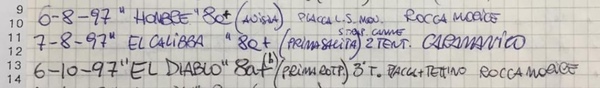 9
10 6-8-97 "HOMBRE" 8a+ (A VISTA) PLACCA L.S. MOV. ROCCA MORICE
11 7-8-97 "EL CALIBBA" 8a+ (PRIMA SALITA) 2 TENT. CARAMANICO
12
13 6-10-97 "EL DIABLO" 8a+ (b) (PRIMA ROTP.) 3° T. PLACCA + TETTINO ROCCA MORICE
14